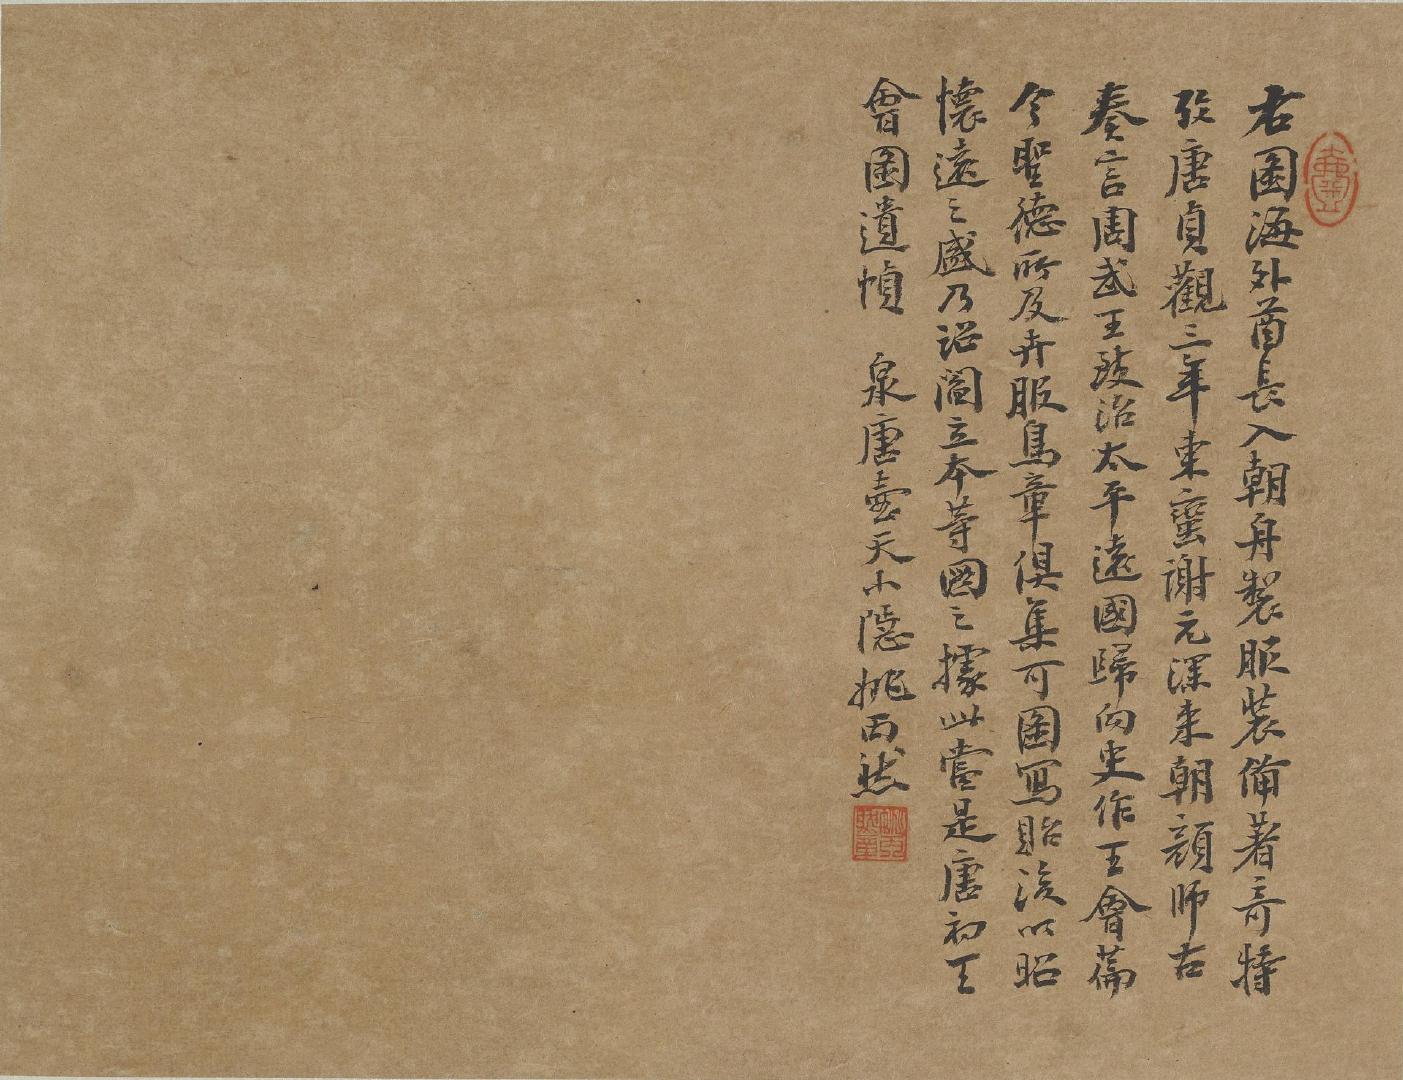 右圖海外酋長入朝冊製服裝備著奇特
攷唐貞觀三年東蠻謝元深來朝顏師古
奏言周武王致治太平遠國歸向史作王會篇
今聖德所及卉服鳥章俱集可圖寫貽後以昭
懷遠之盛乃詔閻立本等圖之據此當是唐初王
會圖遺幀 泉唐壺天小隱姚丙然